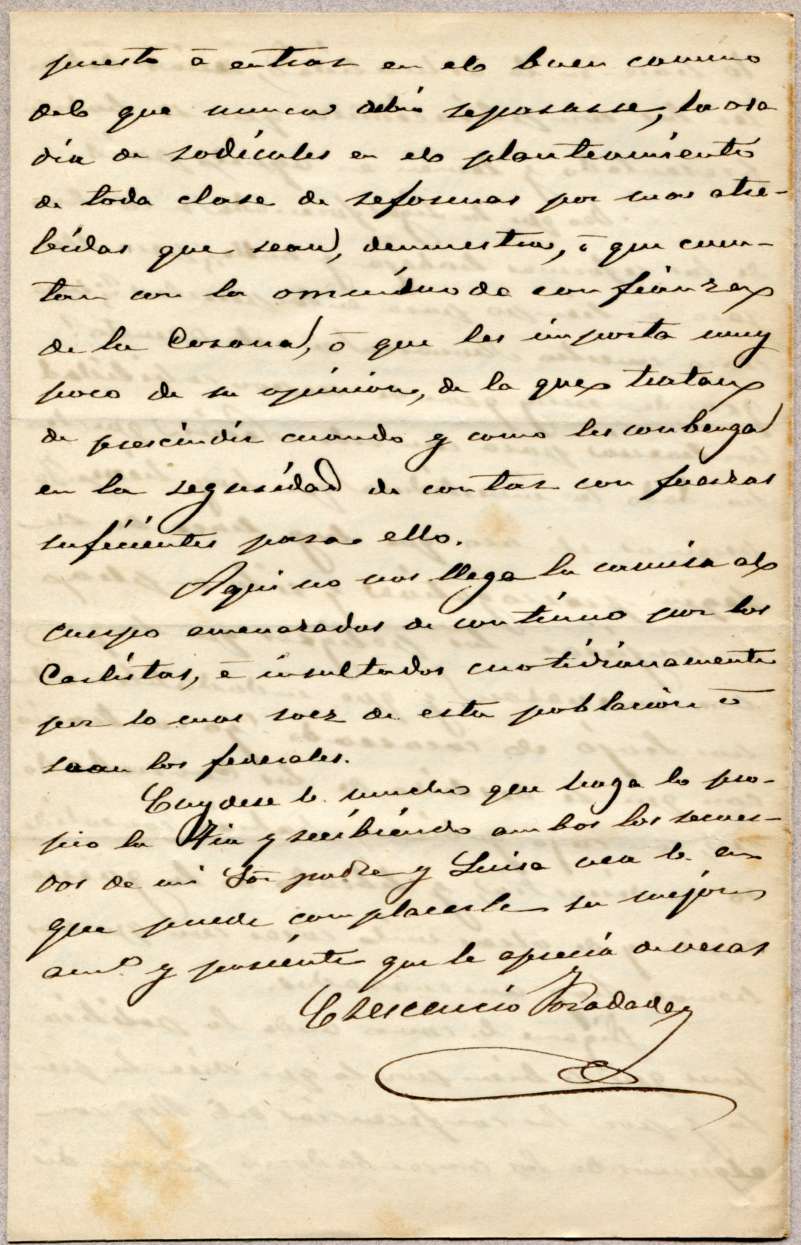 puesto á entrar en el buen camino
del que nunca debió separarse, la osa
día de radicales en el planteamiento
de toda clase de reformas por mas atre-
bidas que sean, demuestra, ó que cuen-
tan con la omnímoda confianza
de la Corona, ó que les importa muy
poco de su opinion, de la que tratan
de prescindir cuando y como les conbenga
en la seguridad de contar con fuerzas
suficientes para ello.
Aqui no nos llega la camisa al
cuerpo amenazados de contínuo por los
Carlistas, é insultados cuotidianamente
por lo mas soez de esta poblacion ó
sean los federales.
Cuydese V. mucho que haga lo pro-
pio la Tia y recibiendo ambos los recuer-
dos de mi Sr. padre y Luisa vea V. en
que puede complacerle su mejor
am.º y pariente que le aprecia de veras
Cresencio